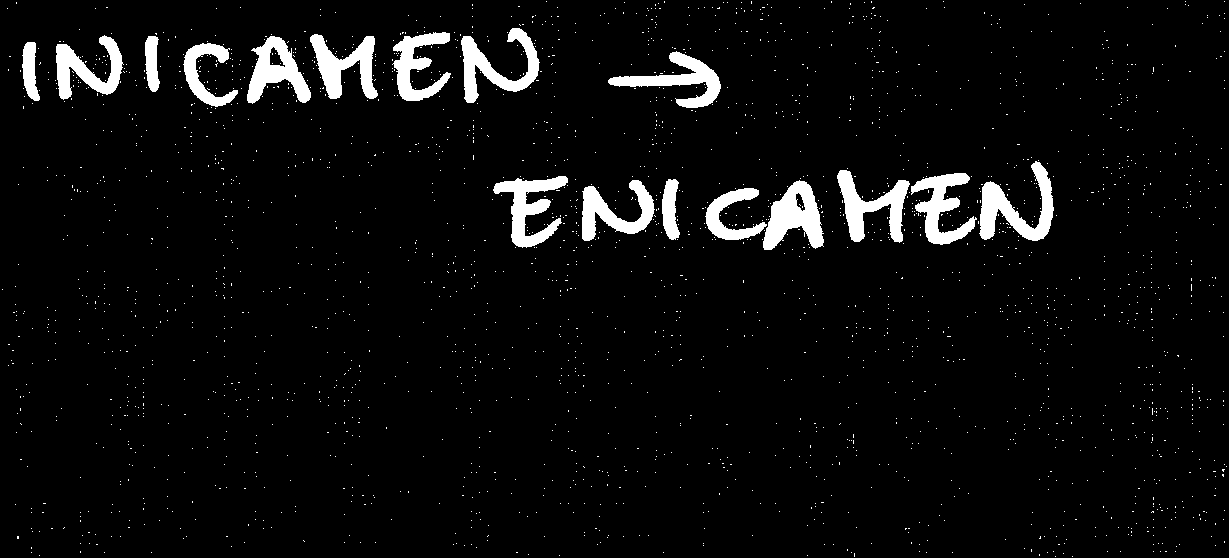 INICAMEN →
ENICAMEN